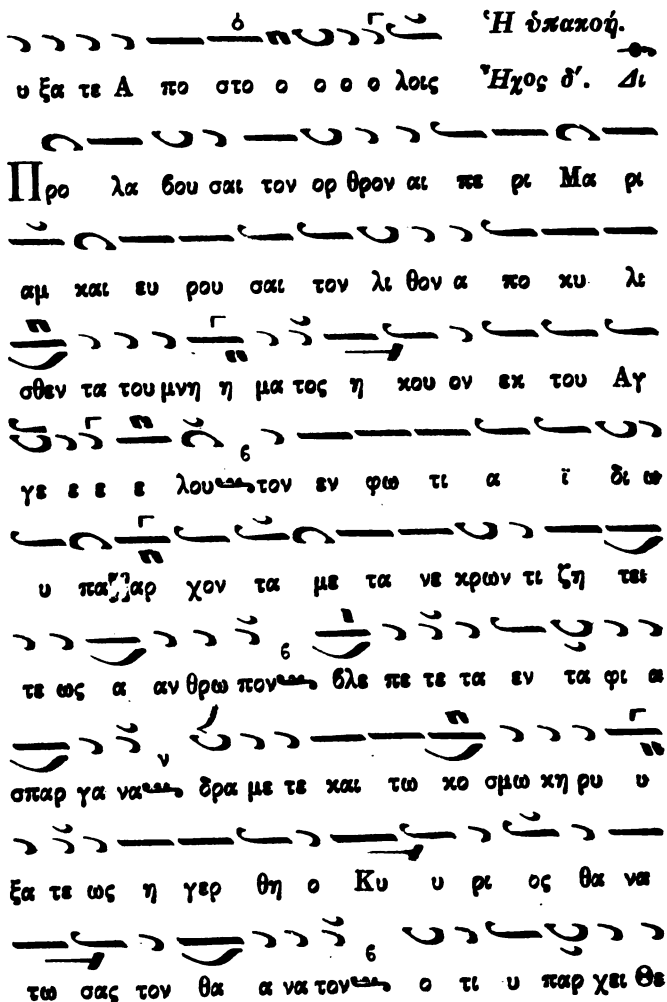 Ἡ ὑπακοή.
υ ξα τε Α πο στο ο ο ο ο λοις Ἦχος δʹ. Δι
Προ λα βου σαι τον ορ θρον αι πε ρι Μα ρι
αμ και ευ ρου σαι τον λι θον α πο κυ λι
σθεν τα του μνη η μα τος η κου ον εκ του Αγ
γε ε ε ε λου τον εν φω τι α ϊ δι ω
υ πα αρ χον τα με τα νε κρων τι ζη τει
τε ως α αν θρω πον βλε πε τε τα εν τα φι α
σπαρ γα να δρα με τε και τω κο σμω κη ρυ υ
ξα τε ως η γερ θη ο Κυ υ ρι ος θα να
τω σας τον θα α να τον ο τι υ παρ χει Θε